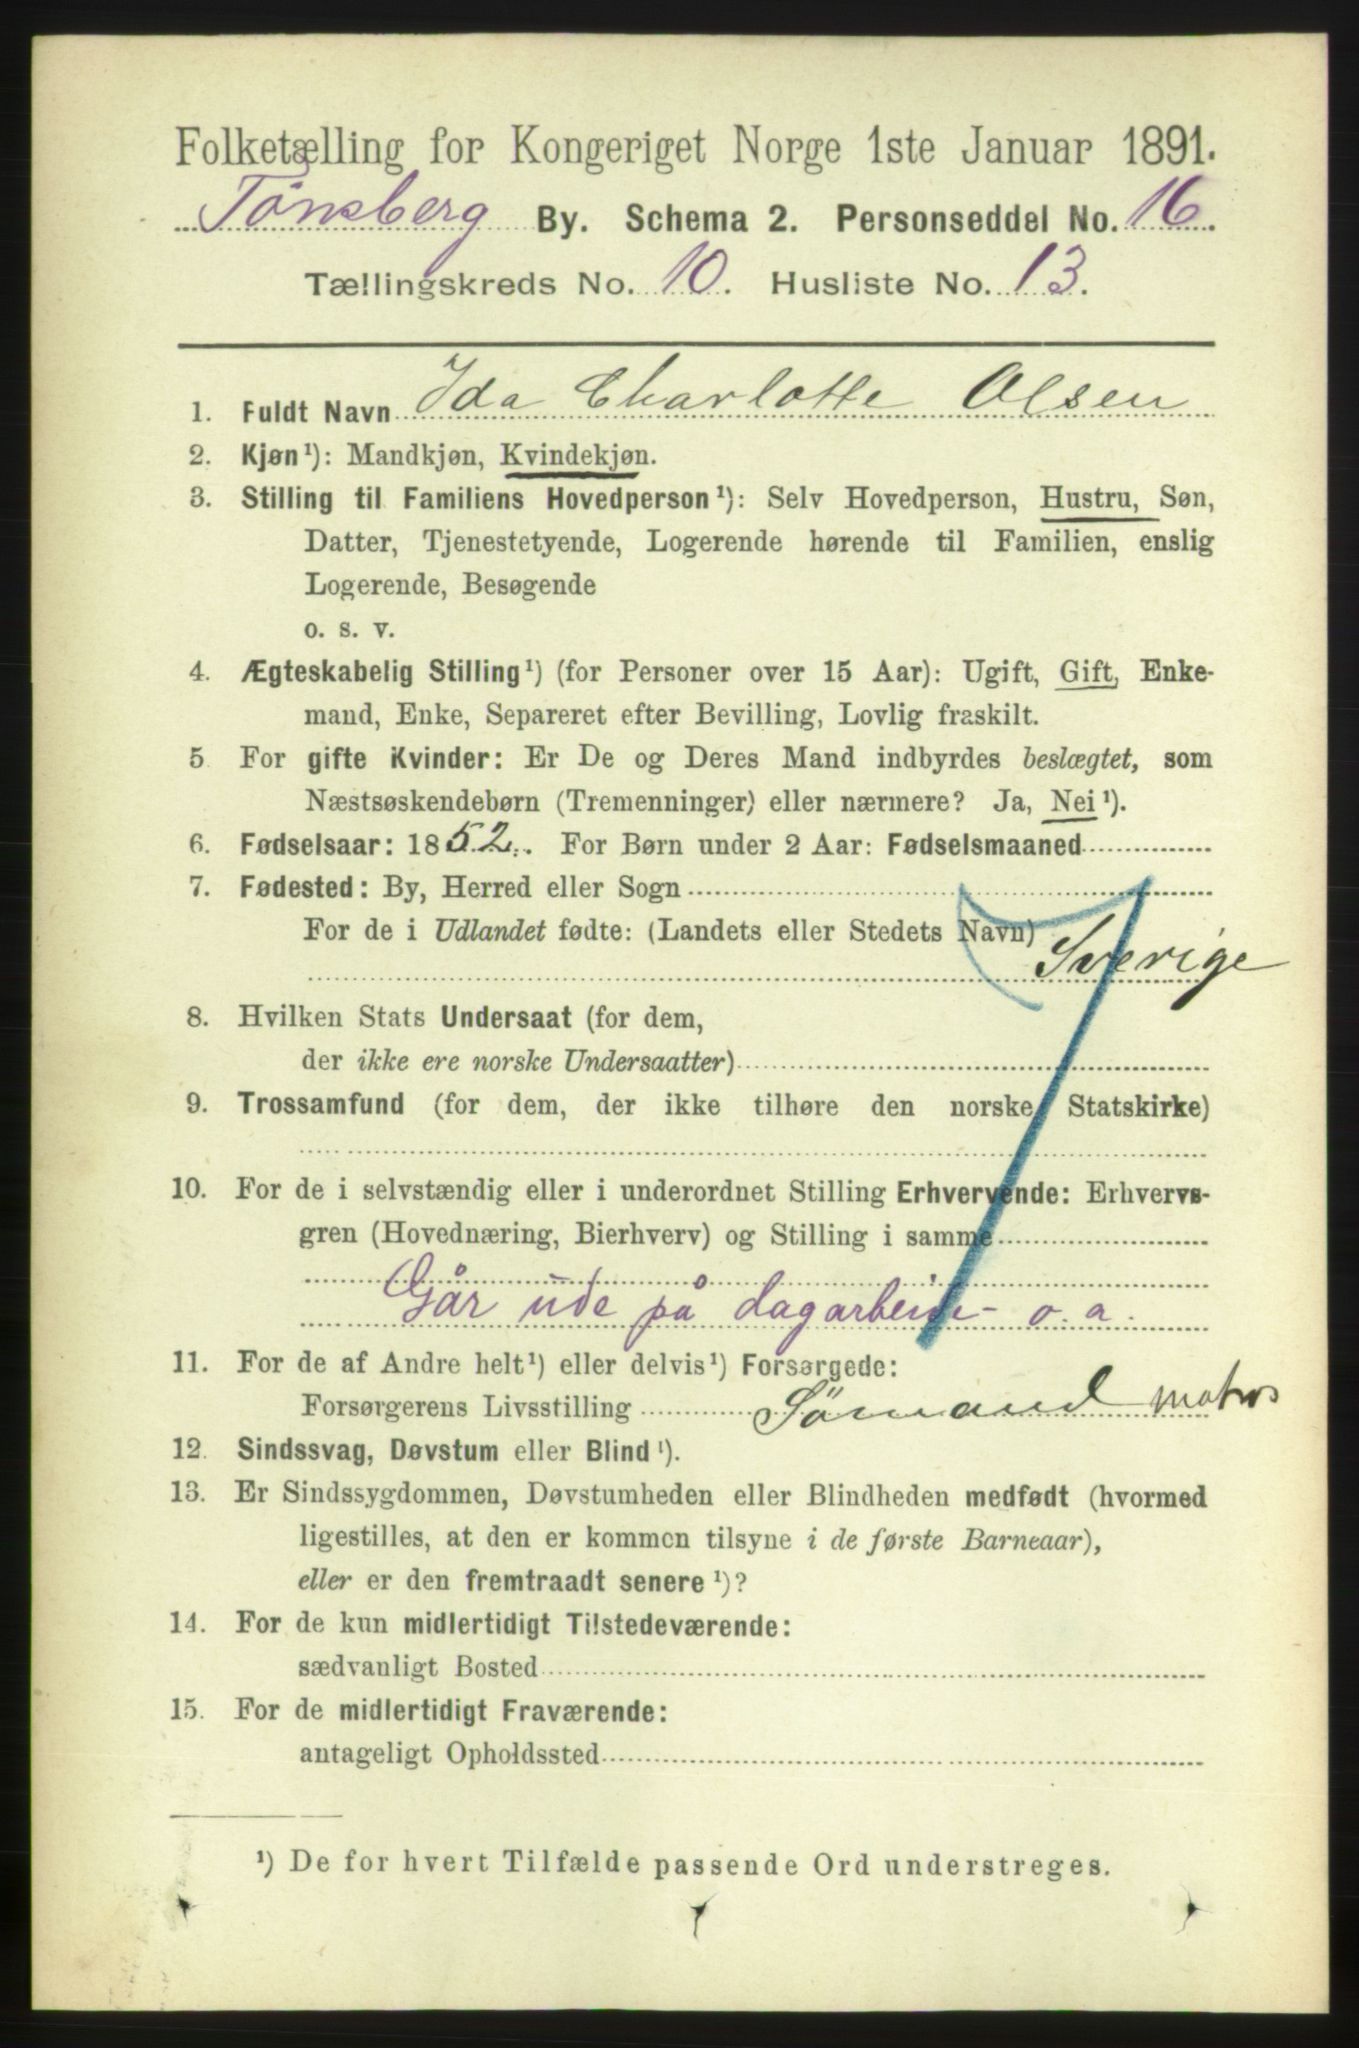 Folketælling for Kongeriget Norge 1ste Januar 1891.
Tönsberg By. Schema 2. Personseddel No. 16.
Tællingskreds No. 10. Husliste No. 13.
1. Fuldt Navn Ida Charlotte Olsen
2. Kjøn¹): Mandkjøn, Kvindekjøn.
3. Stilling til Familiens Hovedperson¹): Selv Hovedperson, Hustru, Søn,
Datter, Tjenestetyende, Logerende hørende til Familien, enslig
Logerende, Besøgende
o. s. v.
4. Ægteskabelig Stilling¹) (for Personer over 15 Aar): Ugift, Gift, Enke-
mand, Enke, Separeret efter Bevilling, Lovlig fraskilt.
5 For gifte Kvinder: Er De og Deres Mand indbyrdes beslægtet, som
Næstsøskendebørn (Tremenninger) eller nærmere? Ja, Nei¹).
6. Fødselsaar: 1852. For Børn under 2 Aar: Fødselsmaaned
7. Fødested: By, Herred eller Sogn
For de i Udlandet fødte: (Landets eller Stedets Navn)
Sverige
8. Hvilken Stats Undersaat (for dem,
der ikke ere norske Undersaatter)
9. Trossamfund (for dem, der ikke tilhøre den norske Statskirke)
10. For de i selvstændig eller i underordnet Stilling Erhvervende: Erhvervs-
gren (Hovednæring, Bierhverv) og Stilling i samme
Går ude på dagarbeide o.a.
11. For de af Andre helt¹) eller delvis¹) Forsørgede:
Forsørgerens Livsstilling Sömand matros
12. Sindssvag, Døvstum eller Blind¹).
13. Er Sindssygdommen, Døvstumheden eller Blindheden medfødt (hvormed
ligestilles, at den er kommen tilsyne i de første Barneaar),
eller er den fremtraadt senere¹)?
14. For de kun midlertidigt Tilstedeværende:
sædvanligt Bosted
15. For de midlertidigt Fraværende:
antageligt Opholdssted
¹) De for hvert Tilfælde passende Ord understreges.